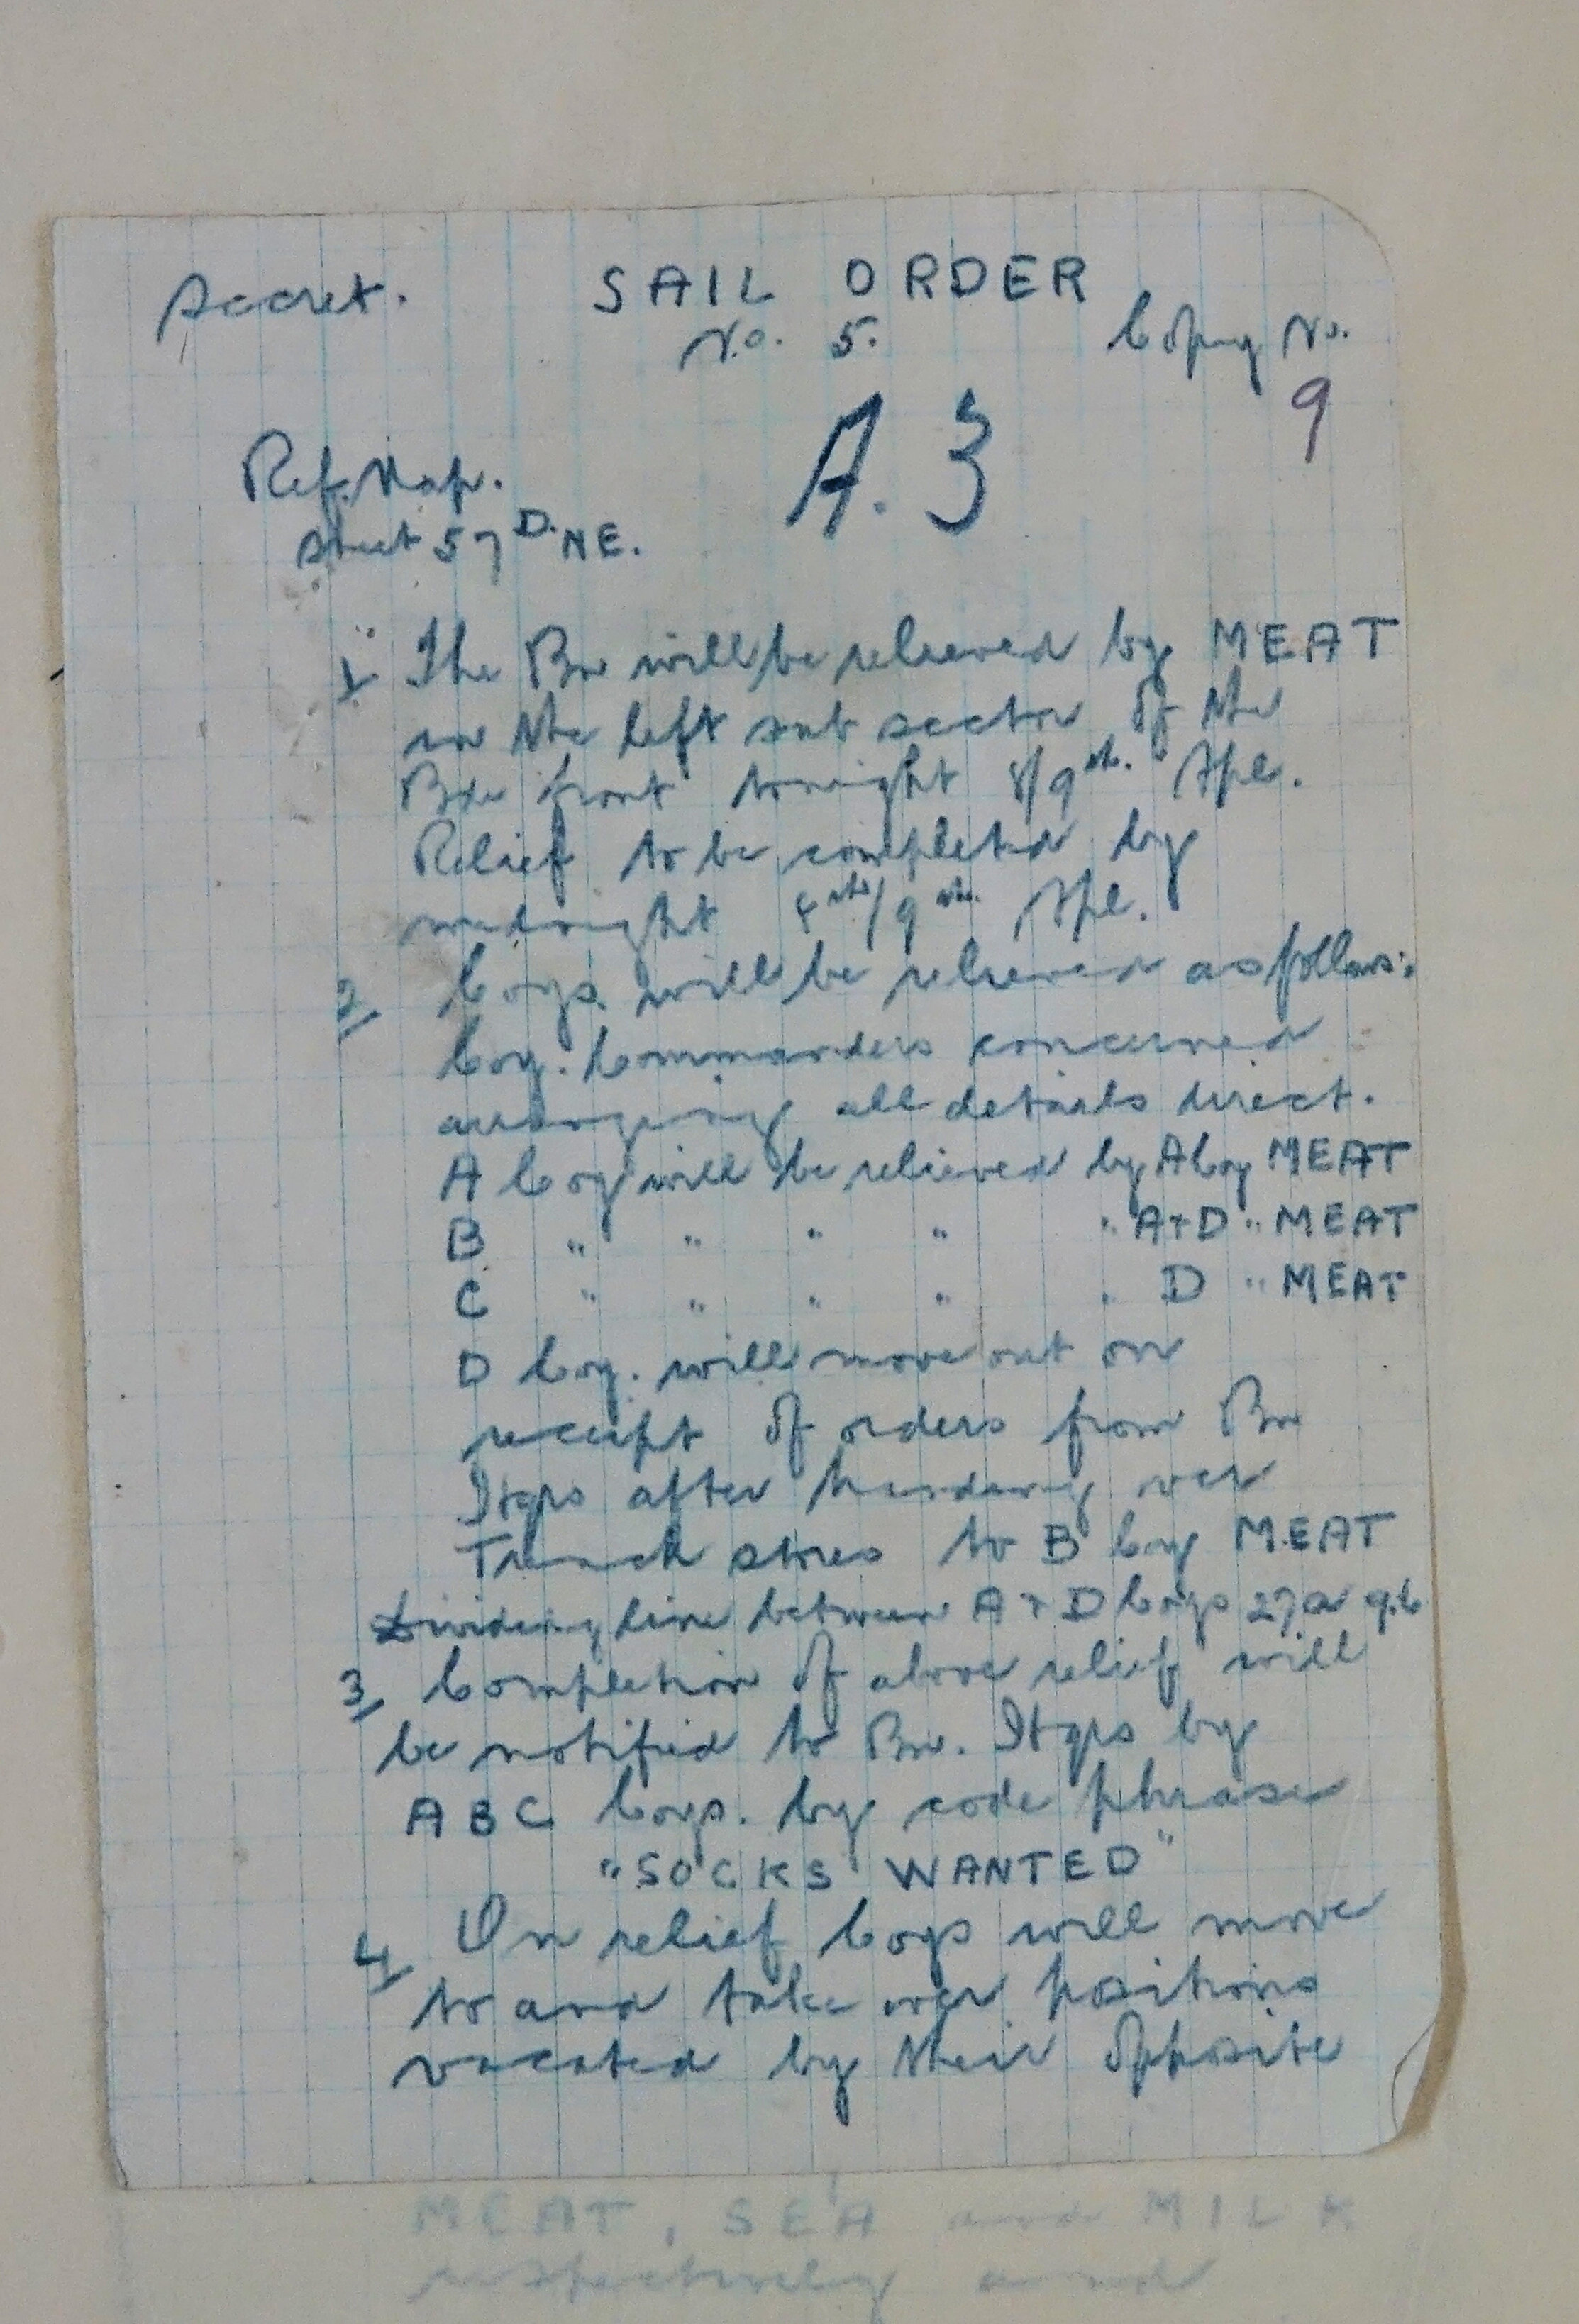 Secret. SAIL ORDER
No. 5. Copy No.
9
A.3
Ref. Map.
Sheet 57D. NE.
1 The Bn will be relieved by MEAT
in the left sub sector of the
Bde front tonight 8/9th. Apl.
Relief to be completed by
midnight 8th/9th. Apl.
2 Coys. will be relieved as follows:
Coy. Commanders concerned
arranging all details direct.
A Coy will be relieved by A Coy MEAT
B " " " " " A+D " MEAT
C " " " " " D " MEAT
D Coy. will move out on
receipt of orders from Bn
Hqrs after handing over
Trench stores to B Coy MEAT
Dividing line between A + D Coys 27a 9.6
3 Completion of above relief will
be notified to Bn. Hqrs by
A B C Coys. by code phrase
"SOCKS WANTED"
4 On relief Coys will move
to and take over positions
vacated by their opposite
MEAT, SEA and MILK
respectively and